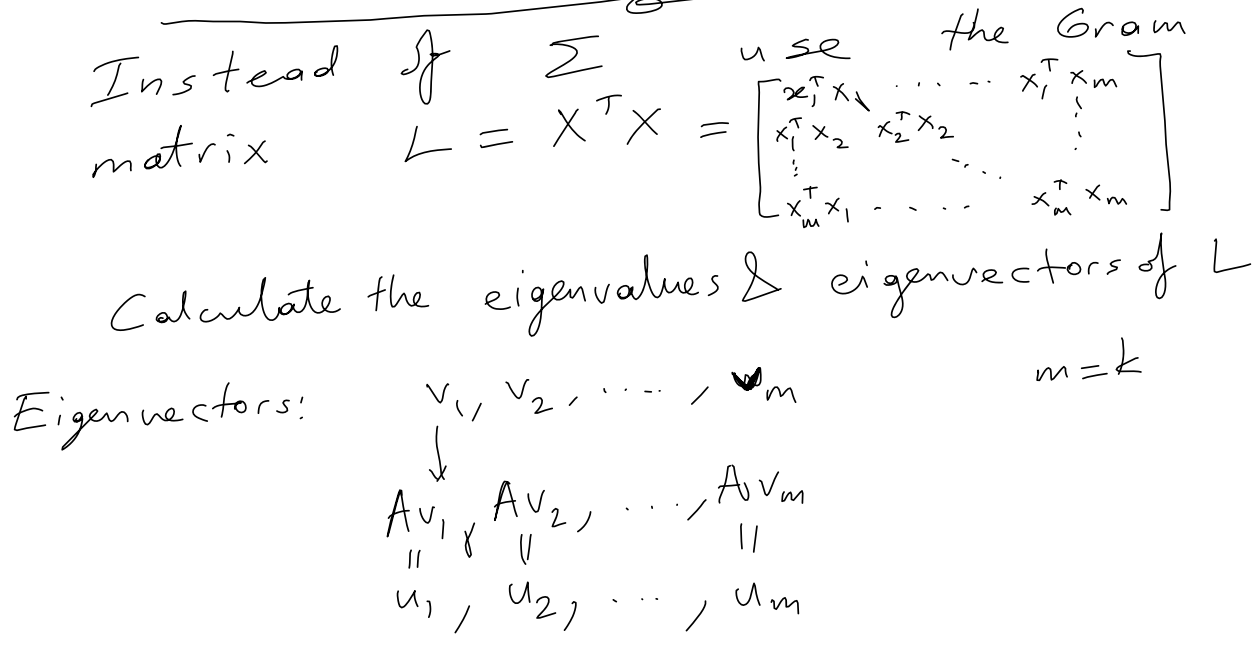 Instead of Σ use the Gram
matrix L = XᵀX = [x₁ᵀx₁ ..... x₁ᵀxₘ
x₁ᵀx₂ x₂ᵀx₂
xₘᵀx₁ ..... xₘᵀxₘ]
Calculate the eigenvalues & eigenvectors of L
m = k
Eigenvectors: v₁, v₂, ....., vₘ
↓
Av₁, Av₂, ..., Avₘ
|| || ||
u₁, u₂, ..., uₘ